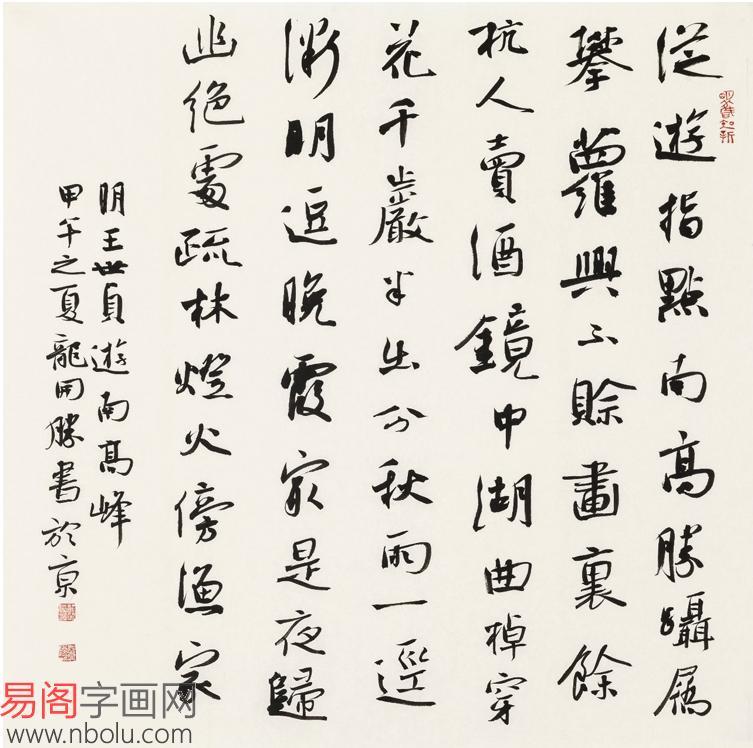 從遊指點南高勝躡屩
攀蘿興不賒畫裏餘
杭人賣酒鏡中湖曲棹穿
花千巖半出分秋雨一逕
微明逗晚霞最是夜歸
幽絕處疏林燈火傍漁家
明王世貞遊南高峰
甲午之夏龍開勝書於京
易阁字画网
www.nbolu.com